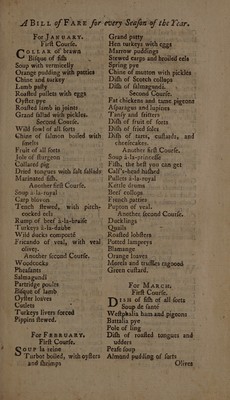 A BILL of FARE for every Season of the Year.
For JANUARY.
First Course.
COLLAR of brawn
Bisque of fish
Soup with vermicelly
Orange pudding with patties
Chine and turkey
Lamb pasty
Roasted pullets with eggs
Oyster pye
Roasted lamb in joints
Grand sallad with pickles.
Second Course.
Wild fowl of all sorts
Chine of salmon boiled with
smelts
Fruit of all sorts
Jole of sturgeon
Collared pig
Dried tongues with salt sallads
Marinated fish.
Another first Course.
Soup à-la-royal
Carp blovon
Tench stewed, with pitch-
cocked eels
Rump of beef à-la-braise
Turkeys à-la-daube
Wild ducks comporté
Fricando of veal, with veal
olives.
Another second Course.
Woodcocks
Pheasants
Salmagundi
Partridge poults
Bisque of lamb
Oyster loaves
Cutlets
Turkeys livers forced
Pippins stewed.
For FEBRUARY.
First Course.
SOUP la reine
Turbot boiled, with oysters
and shrimps
Grand patty
Hen turkeys with eggs
Marrow puddings
Stewed carps and broiled eels
Spring pye
Chine of mutton with pickles
Dish of Scotch collops
Dish of salmagundi.
Second Course.
Fat chickens and tame pigeons
Asparagus and lupines
Tansy and fritters
Dish of fruit of sorts
Dish of fried soles
Dish of tarts, custards, and
cheesecakes.
Another first Course.
Soup à-la-princesse
Fish, the best you can get
Calf's-head hashed
Pullets à-la-royal
Kettle drums
Beef collops
French patties
Pupton of veal.
Another second Course.
Ducklings
Quails
Roasted lobsters
Potted lampreys
Blamange
Orange loaves
Morels and truffles ragooed
Green custard.
For MARCH.
First Course.
DISH of fish of all sorts
Soup de santé
Westphalia ham and pigeons
Battalia pye
Pole of ling
Dish of roasted tongues and
udders
Pease soup
Almond pudding of sorts
Olives